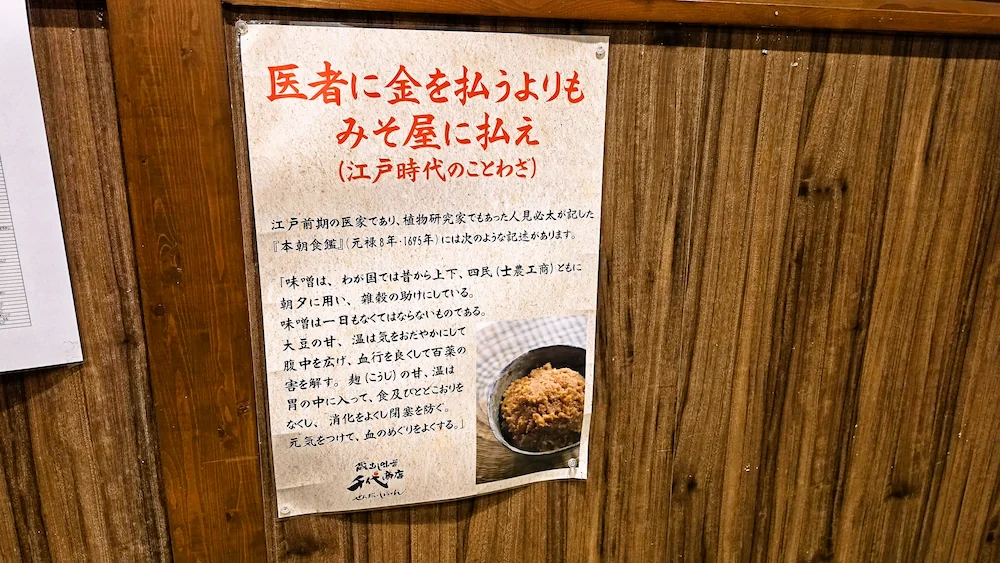 医者に金を払うよりも
みそ屋に払え
(江戸時代のことわざ)
江戸前期の医家であり、植物研究家でもあった人見必太が記した
『本朝食鑑』(元禄8年・1695年)には次のような記述があります。
「味噌は、わが国では昔から上下、四民(士農工商)ともに
朝夕に用い、雑穀の助けにしている。
味噌は一日もなくてはならないものである。
大豆の甘、温は気をおだやかにして
腹中を広げ、血行を良くして百薬の
害を解す。麹(こうじ)の甘、温は
胃の中に入って、食及びととこおりを
なくし、消化をよくし閉塞を防ぐ。
元気をつけて、血のめぐりをよくする。」
蔵出し味噌
千代商店